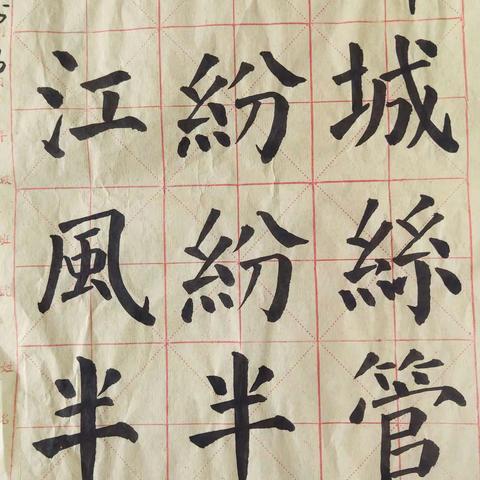 城絲管
紛紛半
江風半